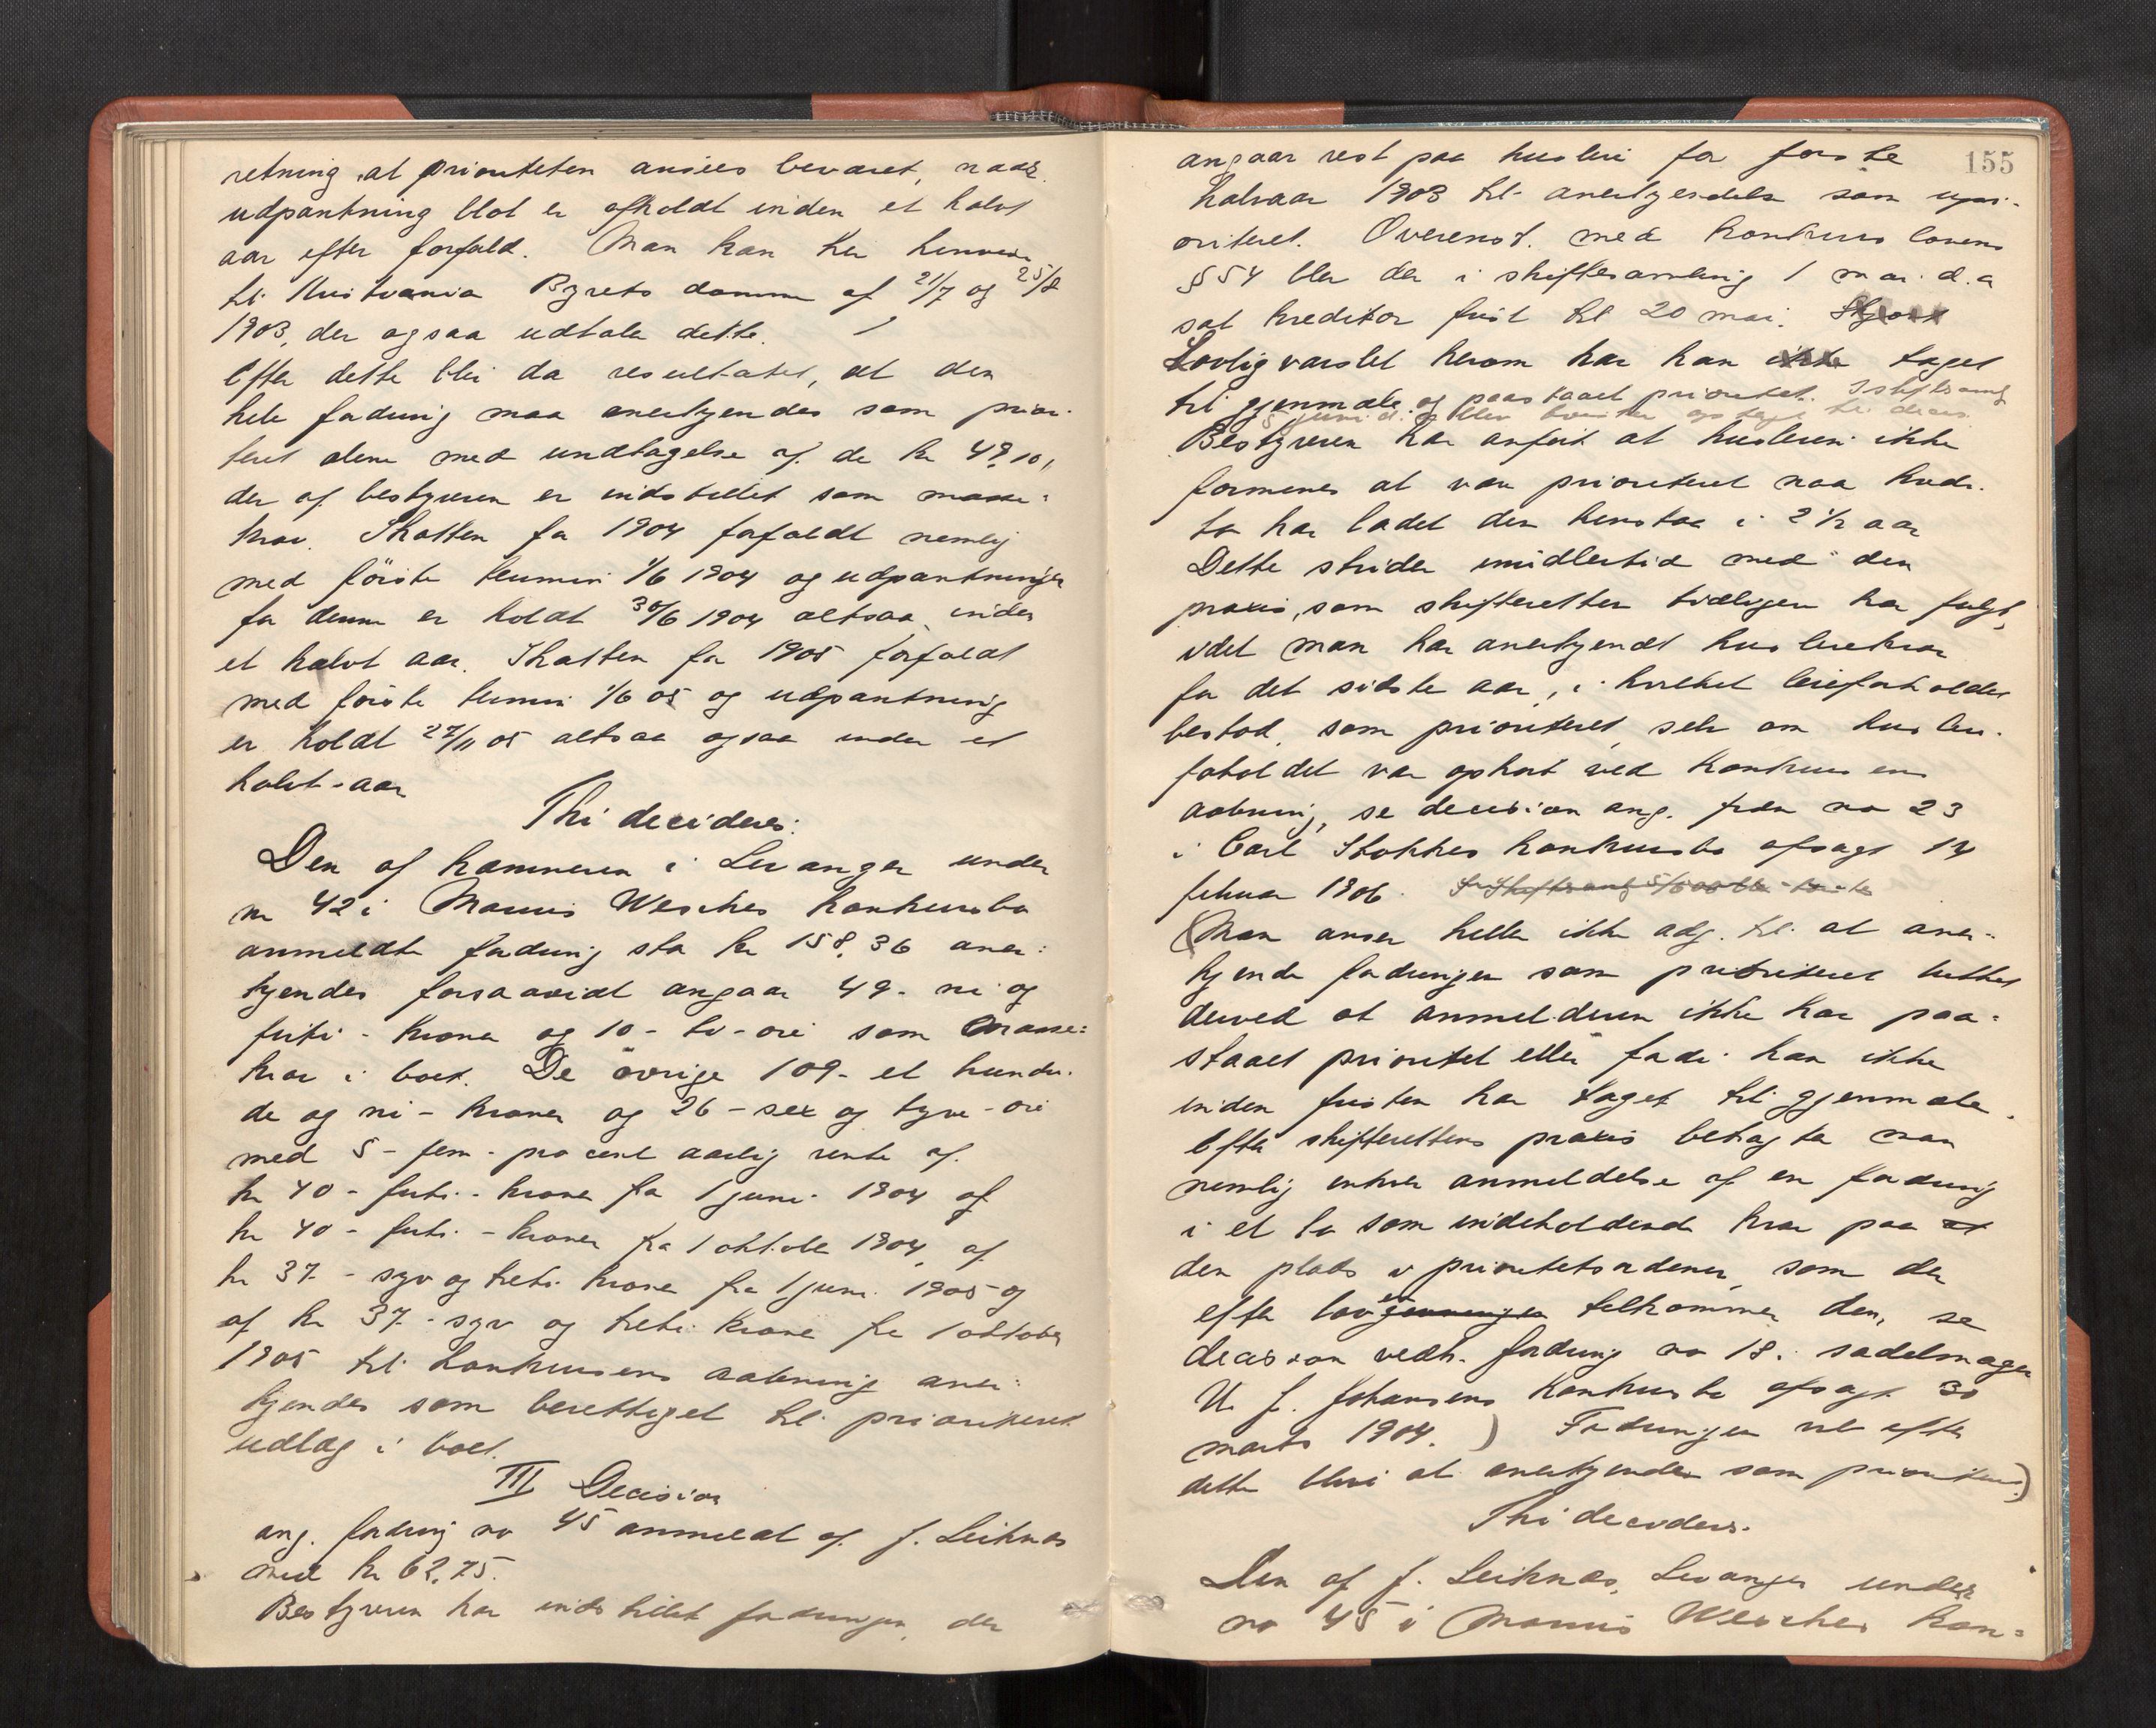 retning, at prioriteten ansees bevaret, naar
udpantning blot er afholdt inden et halvt
aar efter forfald. Man kan her henvise
til Kristiania Byrets domme af 21/7 og 25/8
1903, der ogsaa udtale dette.
Efter dette blir da resultatet, at den
hele fordring maa anerkjendes som prior-
teret alene med undtagelse af de kr 49,10,
der af bestyreren er indstillet som masse-
krav. Skatten for 1904 forfaldt nemlig
med første termin 1/6 1904 og udpantninger
for denne er holdt 30/6 1904 altsaa inden
et halvt aar. Skatten for 1905 forfaldt
med første termin 1/6 05 og udpantning
er holdt 27/11 05 altsaa ogsaa inden et
halvt-aar
Thi decideres:
Den af kæmneren i Levanger under
nr 42 i Marius Wesches konkursbo
anmeldte fordring sto kr 158,36 aner:
kjendes forsaavidt angaar 49- ni og
firti- kroner og 10- ti- øre som Masse:
krav i boet. De øvrige 109- et hundre-
de og ni- kroner og 26- sex og tyve- øre
med 5- fem- procent aarlig rente af
kr 40- firti- kroner fra 1 juni 1904 af
kr 40- firti- kroner fra 1 oktober 1904, af
kr 37- syv og treti kroner fra 1 juni 1905 og
af kr 37- syv og treti kroner fra 1 oktober
1905 til konkursens aabning aner:
kjendes som berettiget til prioriteret
udlæg i boet.
III Decision
ang. fordring no 45 anmeldt af J. Leiknes
med kr 62,75.
Bestyreren har indstillet fordringen, der
155
angaar rest paa husleie for første
halvaar 1903 til anerkjendelse som upri-
oriteret. Overenst. med konkurslovens
§ 54 blev der i skiftesamling 1 mai d.a
sat kreditor frist til 20 mai.
Lovlig varslet herom har han ikke taget
til gjenmæle og paastaaet prioritet. I skiftesaml
5 juni d. a blev tvisten optaget til decis.
Bestyreren har anført at husleien ikke
formenes at være prioriteret naar kredi-
tor har ladet den henstaa i 2 1/2 aar
Dette strider imidlertid med den
praxis, som skifteretten tidligere har fulgt,
idet man har anerkjendt husleiekrav
for det sidste aar, i hvilket leieforholdet
bestod, som prioriteret, selv om husleie-
forholdet var ophørt ved konkursens
aabning, se decision ang. fordr. no 23
i Carl Stokkes konkursbo afsagt 14
februar 1906.
(Man anser heller ikke adg. til at aner-
kjende fordringen som prioriteret lukket
derved at anmelderen ikke har paa-
staaet prioritet eller fordi han ikke
inden fristen har taget til gjenmæle.
Efter skifterettens praxis betragter man
nemlig enhver anmeldelse af en fordring
i et bo som indeholdende krav paa at
den plads i prioritetsordenen, som der
efter loven tilkommer den, se
decision vedk. fordring no 18 i sadelmager
U. J. Johansens konkursbo afsagt 30
marts 1904.) Fordringen vil efter
dette blive at anerkjende som prioriteret)
Thi decideres:
Den af J. Leiknes, Levanger under
no 45 i Marius Wesches kon=